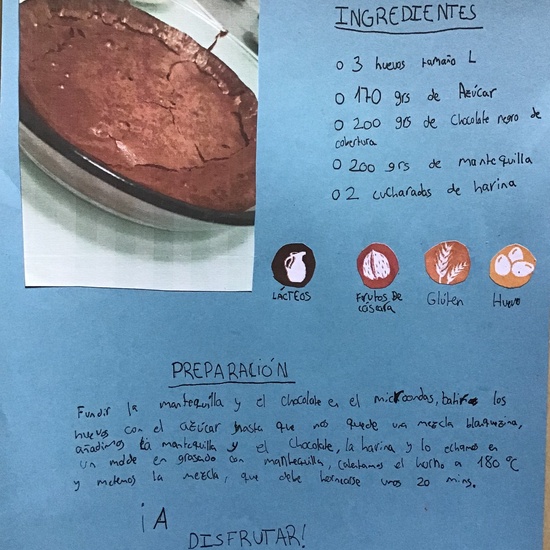 INGREDIENTES
o 3 huevos tamaño L
o 170 grs de Azúcar
o 200 grs de Chocolate negro de
cobertura
o 200 grs de mantequilla
o 2 cucharadas de harina
LÁCTEOS
FRUTOS DE
CÁSCARA
Glúten
Huevo
PREPARACIÓN
Fundir la mantequilla y el chocolate en el microondas, batir los
huevos con el azúcar hasta que nos quede una mezcla blanquzina,
añadimos la mantequilla y el chocolate, la harina y lo echamos en
un molde en grasado con mantequilla, calentamos el horno a 180 °C
y metemos la mezcla, que debe hornearse unos 20 mins.
¡A
DISFRUTAR!